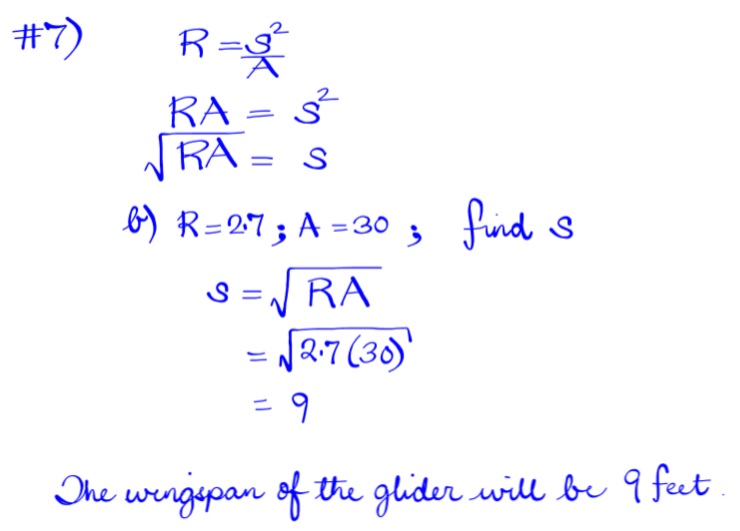 #7) R = s²/A
RA = s²
√RA = s
b) R = 2.7 ; A = 30 ; find s
s = √RA
= √2.7(30)
= 9
The wingspan of the glider will be 9 feet.